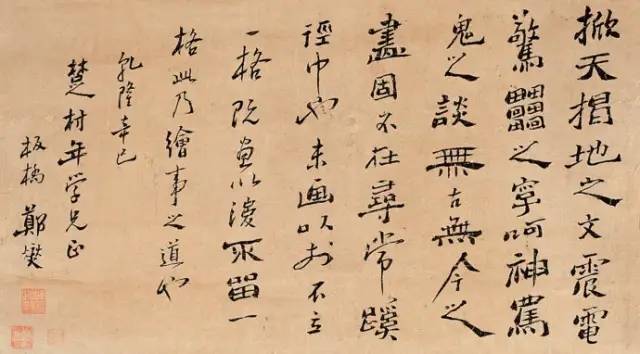 掀天揭地之文震電
驚靁之字呵神罵
鬼之談無古無今之
畫固不在尋常蹊
徑中也未画以前不立
一格既畫以後不留一
格此乃繪事之道也
乾隆辛巳
楚村年学兄正
板橋鄭燮